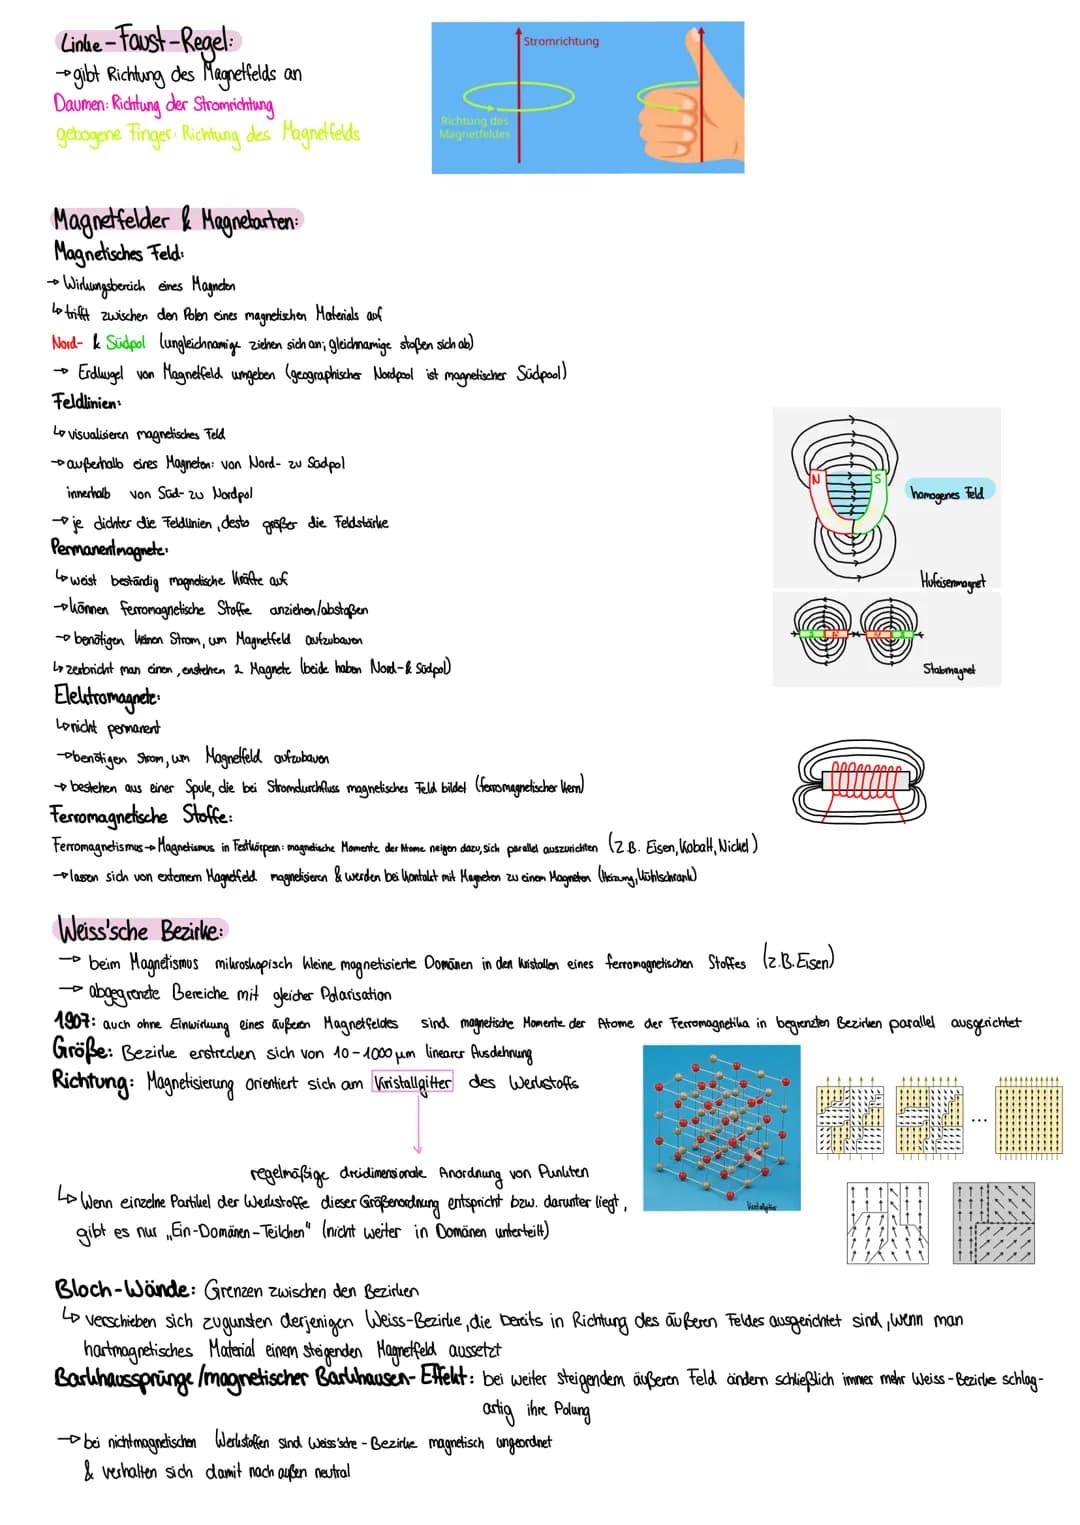 Linke-Faust-Regel:
→ gibt Richtung des Magnetfelds an
Daumen: Richtung der Stromrichtung
gebogene Finger: Richtung des Magnetfelds
Stromrichtung
Richtung des
Magnetfeldes
Magnetfelder & Magnetarten:
Magnetisches Feld:
→ Wirkungsbereich eines Magneten
↳ trifft zwischen den Polen eines magnetischen Materials auf
Nord- & Südpol (ungleichnamige ziehen sich an; gleichnamige stoßen sich ab)
→ Erdkugel von Magnetfeld umgeben (geographischer Nordpool ist magnetischer Südpool)
Feldlinien:
↳ visualisieren magnetisches Feld
→ außerhalb eines Magneten: von Nord- zu Südpol
innerhalb von Süd- zu Nordpol
→ je dichter die Feldlinien, desto größer die Feldstärke
N
S
homogenes Feld
Hufeisenmagnet
Permanentmagnete:
↳ weist beständig magnetische Kräfte auf
→ können ferromagnetische Stoffe anziehen/abstoßen
→ benötigen keinen Strom, um Magnetfeld aufzubauen
↳ zerbricht man einen, enstehen 2 Magnete (beide haben Nord- & Südpol)
Stabmagnet
Elektromagnete:
↳ nicht permanent
→ benötigen Strom, um Magnetfeld aufzubauen
→ bestehen aus einer Spule, die bei Stromdurchfluss magnetisches Feld bildet (ferromagnetischer Kern)
Ferromagnetische Stoffe:
Ferromagnetismus → Magnetismus in Festkörpern: magnetische Momente der Atome neigen dazu, sich parallel auszurichten (z.B. Eisen, Kobalt, Nickel)
→ lassen sich von externem Magnetfeld magnetisieren & werden bei Kontakt mit Magneten zu einem Magneten (Heizung, Kühlschrank)
Weiss'sche Bezirke:
→ beim Magnetismus mikroskopisch kleine magnetisierte Domänen in den Kristallen eines ferromagnetischen Stoffes (z.B. Eisen)
→ abgegrenzte Bereiche mit gleicher Polarisation
1907: auch ohne Einwirkung eines äußeren Magnetfeldes sind magnetische Momente der Atome der Ferromagnetika in begrenzten Bezirken parallel ausgerichtet
Größe: Bezirke erstrecken sich von 10-1000 µm linearer Ausdehnung
Richtung: Magnetisierung orientiert sich am Kristallgitter des Werkstoffs
...
regelmäßige dreidimensionale Anordnung von Punkten
Kristallgitter
↳ Wenn einzelne Partikel der Werkstoffe dieser Größenordnung entspricht bzw. darunter liegt,
gibt es nur „Ein-Domänen-Teilchen" (nicht weiter in Domänen unterteilt)
Bloch-Wände: Grenzen zwischen den Bezirken
↳ verschieben sich zugunsten derjenigen Weiss-Bezirke, die bereits in Richtung des äußeren Feldes ausgerichtet sind, wenn man
hartmagnetisches Material einem steigenden Magnetfeld aussetzt
Barkhaussprünge/magnetischer Barkhausen-Effekt: bei weiter steigendem äußeren Feld ändern schließlich immer mehr Weiss-Bezirke schlag-
artig ihre Polung
→ bei nichtmagnetischen Werkstoffen sind Weiss'sche-Bezirke magnetisch ungeordnet
& verhalten sich damit nach außen neutral